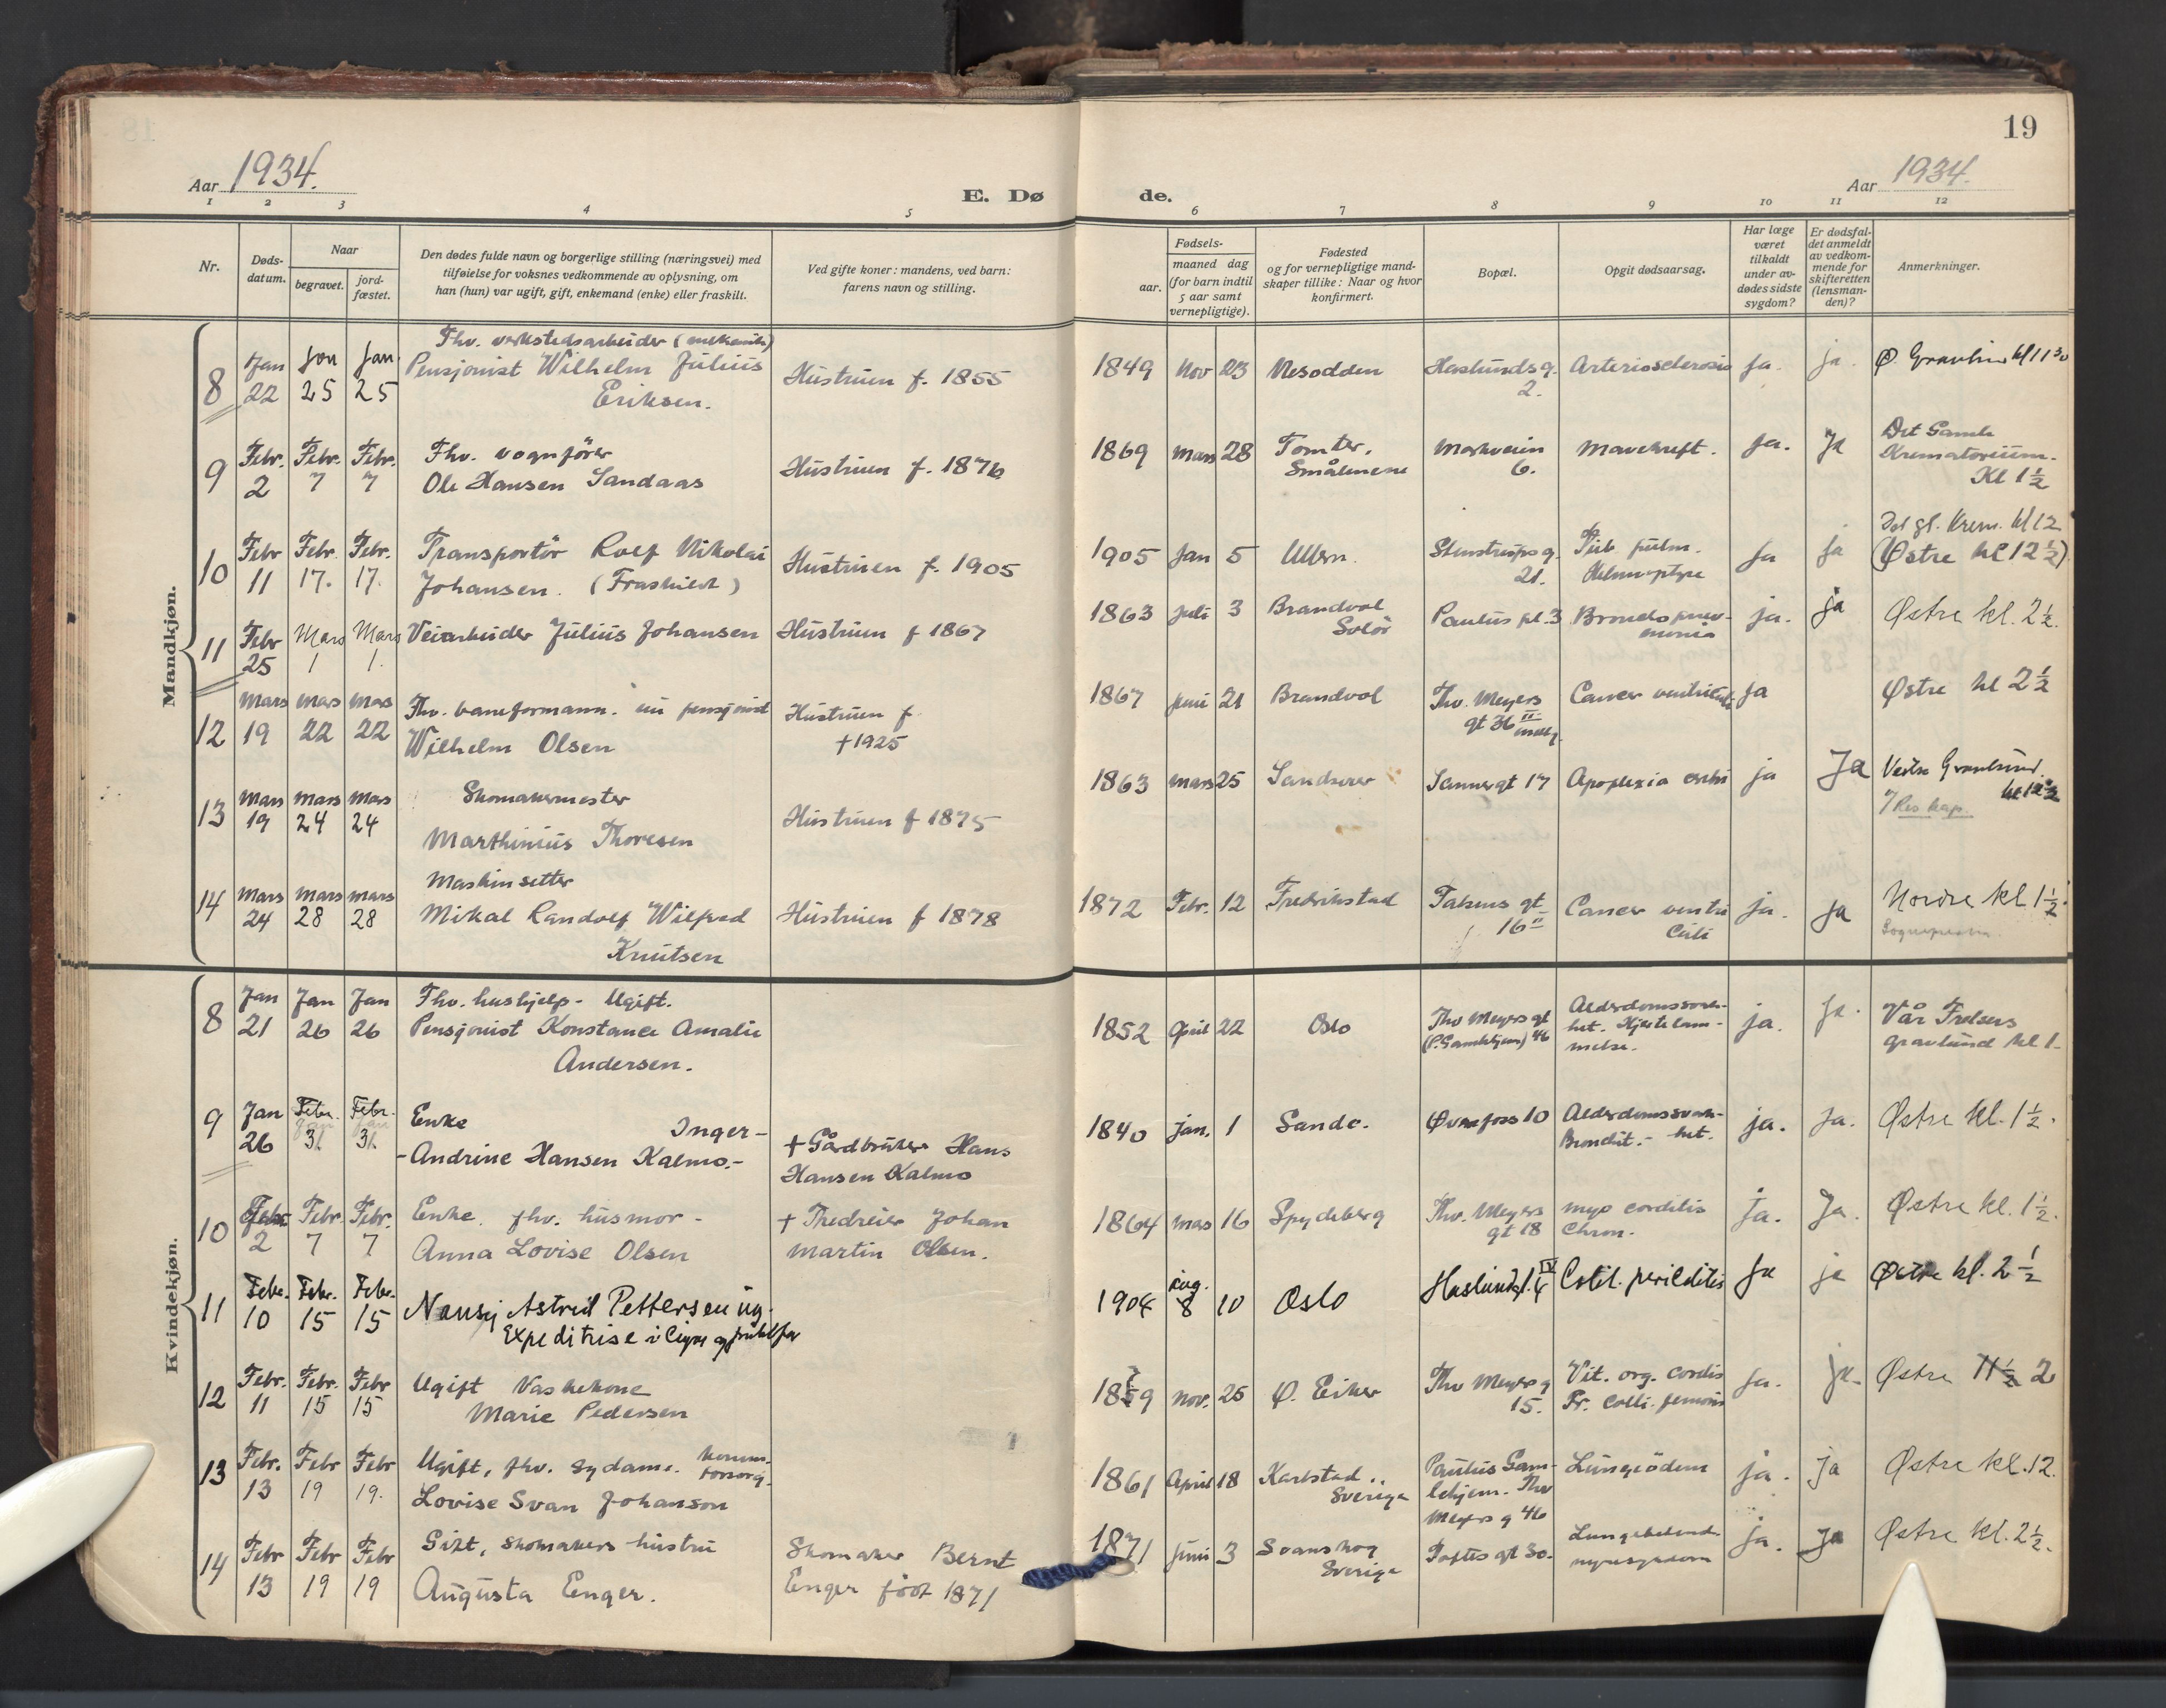 19
Aar 1934.
E. Dø
de.
Aar 1934.
1 2 3 4 5 6 7 8 9 10 11 12
Nr.
Døds-
datum.
Naar
begravet.
jord-
fæstet.
Den dødes fulde navn og borgerlige stilling (næringsvei) med
tilføielse for voksnes vedkommende av oplysning, om
han (hun) var ugift, gift, enkemand (enke) eller fraskilt.
Ved gifte koner: mandens, ved barn:
farens navn og stilling.
Fødsels-
aar.
maaned dag
(for barn indtil
5 aar samt
vernepligtige).
Fødested
og for vernepligtige mand-
skaper tillike: Naar og hvor
konfirmert.
Bopæl.
Opgit dødsaarsag.
Har læge
været
tilkaldt
under av-
dødes sidste
sygdom?
Er dødsfal-
det anmeldt
av vedkom-
mende for
skifteretten
(lensman-
den)?
Anmerkninger.
Mandkjøn.
Thv. verkstedsarbeider (mekanik)
8 Jan Jan Jan. Pensjonist Wilhelm Julius Hustruen f. 1855 1849 Nov 23 Nesodden Haslunds g. Arteriosclerosis ja. ja. Ø. Gravlund kl 11 30
22 25 25 Eriksen. 2.
9 Febr. Febr. Febr. Thv. vognfører Hustruen f. 1876 1869 mars 28 Tomter, Markveien Mavekreft. ja. ja Det Gamle
2 7 7 Ole Hansen Sandaas Smålenene 6. Krematorium.
Kl 1 ½
10 Febr Febr. Febr. Transportør Rolf Nikolai Hustruen f. 1905 1905 Jan 5 Ullern. Stenstrups g. Tub. pulm. ja ja Det gl. Krem. kl 12
11 17. 17. Johansen. (Fraskildt) 21. Hemoptyse (Østre kl 12 ½)
11 Febr Mars Mars Veiarbeider Julius Johansen Hustruen f 1867 1863 Juli 3 Brandvol Paulus pl. 3 Broncho pnev- ja. ja Østre kl. 2 ½.
25 1 1. Solør monia
12 Mars mars mars Thv. baneformann. nu pensjonist Hustruen f. 1867 juni 21 Brandvol Thv. Meyers Cancer ventriculi ja Østre kl 2 ½
19 22 22 Wilhelm Olsen †1925 gt 36 II
13 Mars mars mars Skomakermester Hustruen f 1875 1863 mars 25 Sandsvær Sannergt 17 Apoplexia cerebri ja Ja Vestre Gravlund.
19 24 24 Marthinius Thoresen kl 12 ½
14 Mars mars mars Maskinsetter Hustruen f 1878 1872 Febr. 12 Fredrikstad gt Cancer ventri ja. ja Nordre kl. 1 ½.
24 28 28 Mikal Randolf Wilfred 16 II culi
Knutsen
Kvindekjøn.
8 Jan Jan Jan Thv. hushjelp - Ugift. 1852 April 22 Oslo Thv Meyers gt Alderdomssvak- ja. ja. Vår Frelsers
21 26 26 Pensjonist Konstance Amalie (P. Gamlehjem) 46 het. Hjertelam- gravlund kl 1.
Andersen. melse.
9 Jan Febr. Febr. Enke Inger- † Gårdbruker Hans 1840 jan. 1 Sande. Øvrefoss 10 Alderdomssvak- ja. ja. Østre kl. 1 ½.
26 31. 31. -Andrine Hansen Kalmo.- Hansen Kalmo Bronchit. - het.
10 Febr. Febr. Febr. Enke. fhv. husmor - † Tredreier Johan 1864 mars 16 Spydeberg Thv. Meyers myo corditis ja. Ja. Østre kl. 1 ½.
2 7 7 Anna Lovise Olsen Martin Olsen. gt 18 Chron.
11 Febr. Febr. Febr. Nansy Astrid Pettersen ug. 1904 aug. 8 10 Oslo ja ja Østre kl. 2 ½
10 15 15 Expeditrise i
12 Febr. Febr. Febr Ugift Vaskekone 1859 nov. 25 Ø. Eiker Thv Meyers g Vit. org. cordis ja. ja. Østre 11 ½ 2
11 15 15 Marie Pedersen 15. Fr. Colli. femoris
13 Febr. Febr Febr Ugift, fhv. sydame. komm. forsorg. 1861 April 18 Karlstad.. Paulus Gam- Lungeödem ja. ja Østre kl. 12.
13 19 19. Lovise Svan Johanson Sverige lehjem. Thv
Meyers g 46
14 Febr Febr Febr Gift, skomakers hustru Skomaker Bernt 1871 juni 3 Svanskog Toftes gt 30. Lungebetend. ja. ja Østre kl. 2 ½.
13 19 19 Augusta Enger. Enger født 1871 Sverige nyresygdom